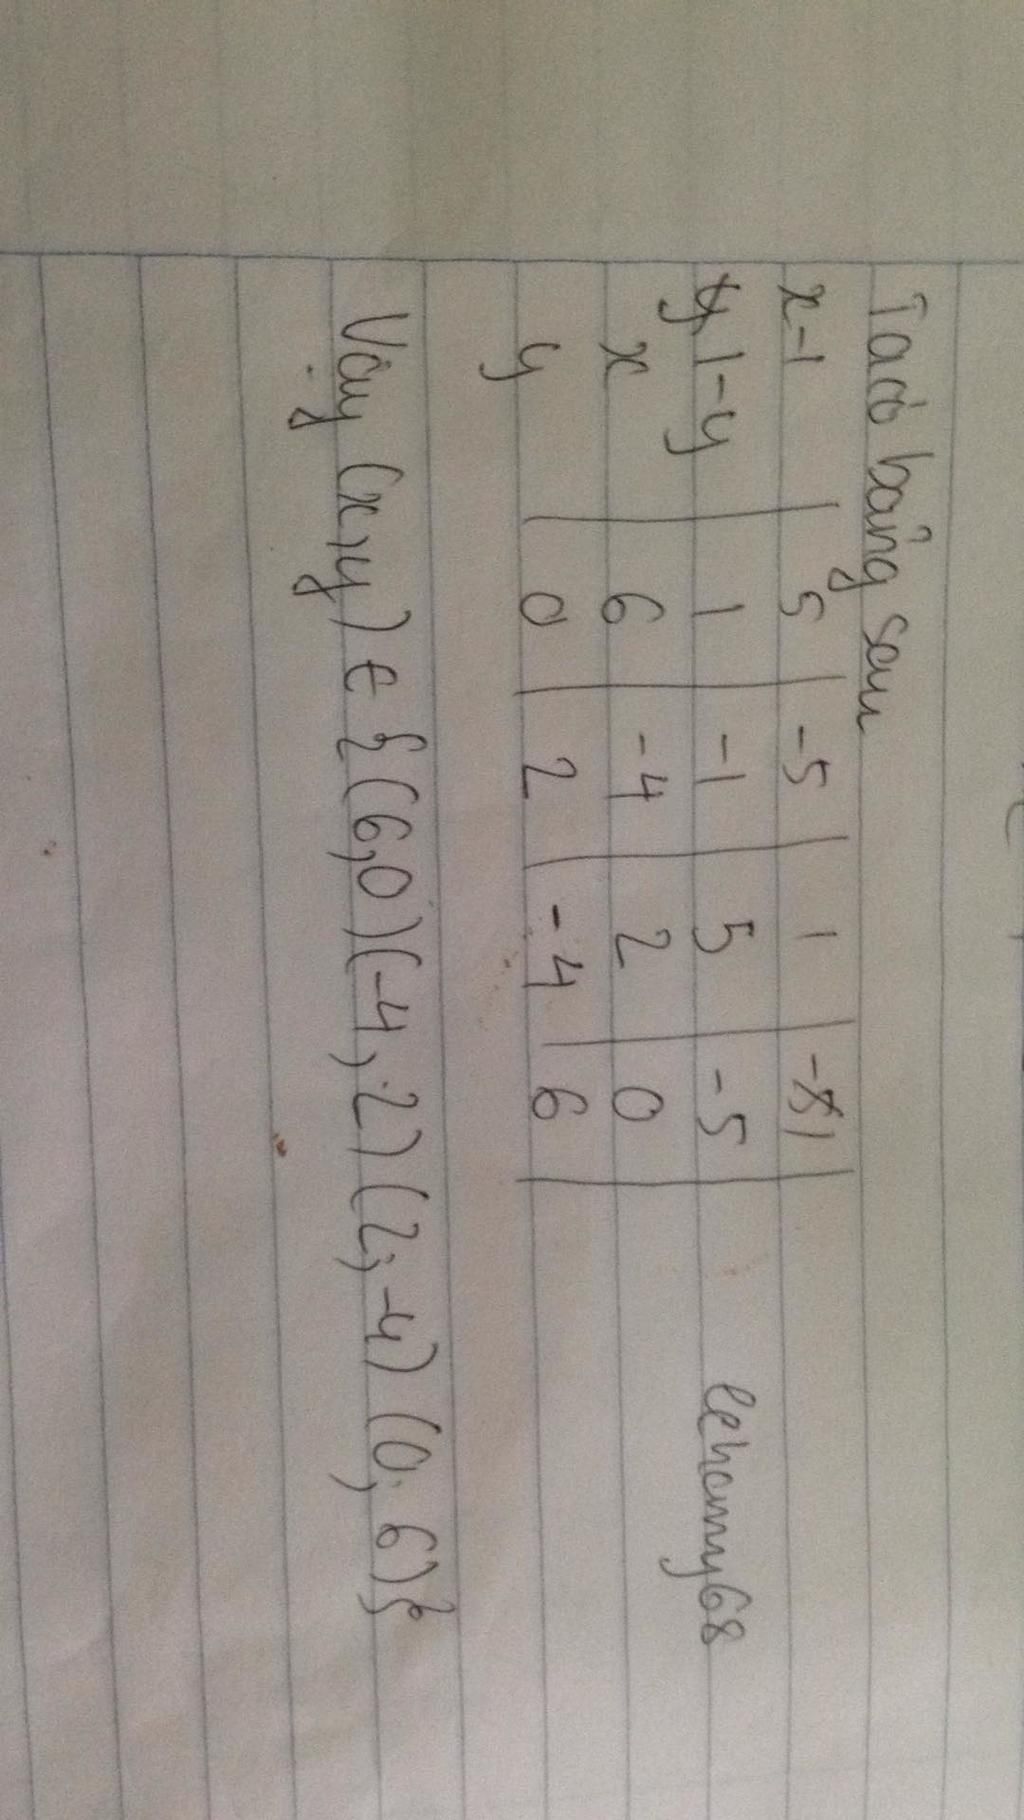 Ta có bảng sau
x-1 5 -5 1 -1
1-y 1 -1 5 -5
x 6 -4 2 0
y 0 2 -4 6
lehamy68
Vậy (x,y) ∈ {(6,0)(-4,2)(2;-4)(0,6)}